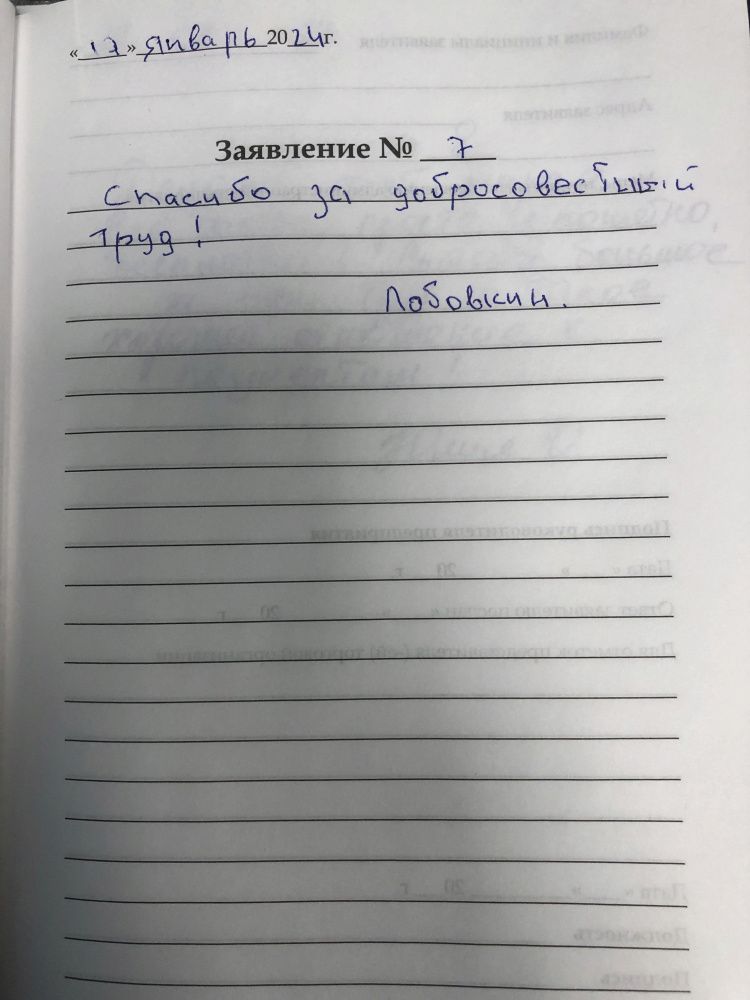 «17» январь 2024г.
Заявление № 7
Спасибо за добросовестный
труд!
Лобовкин.